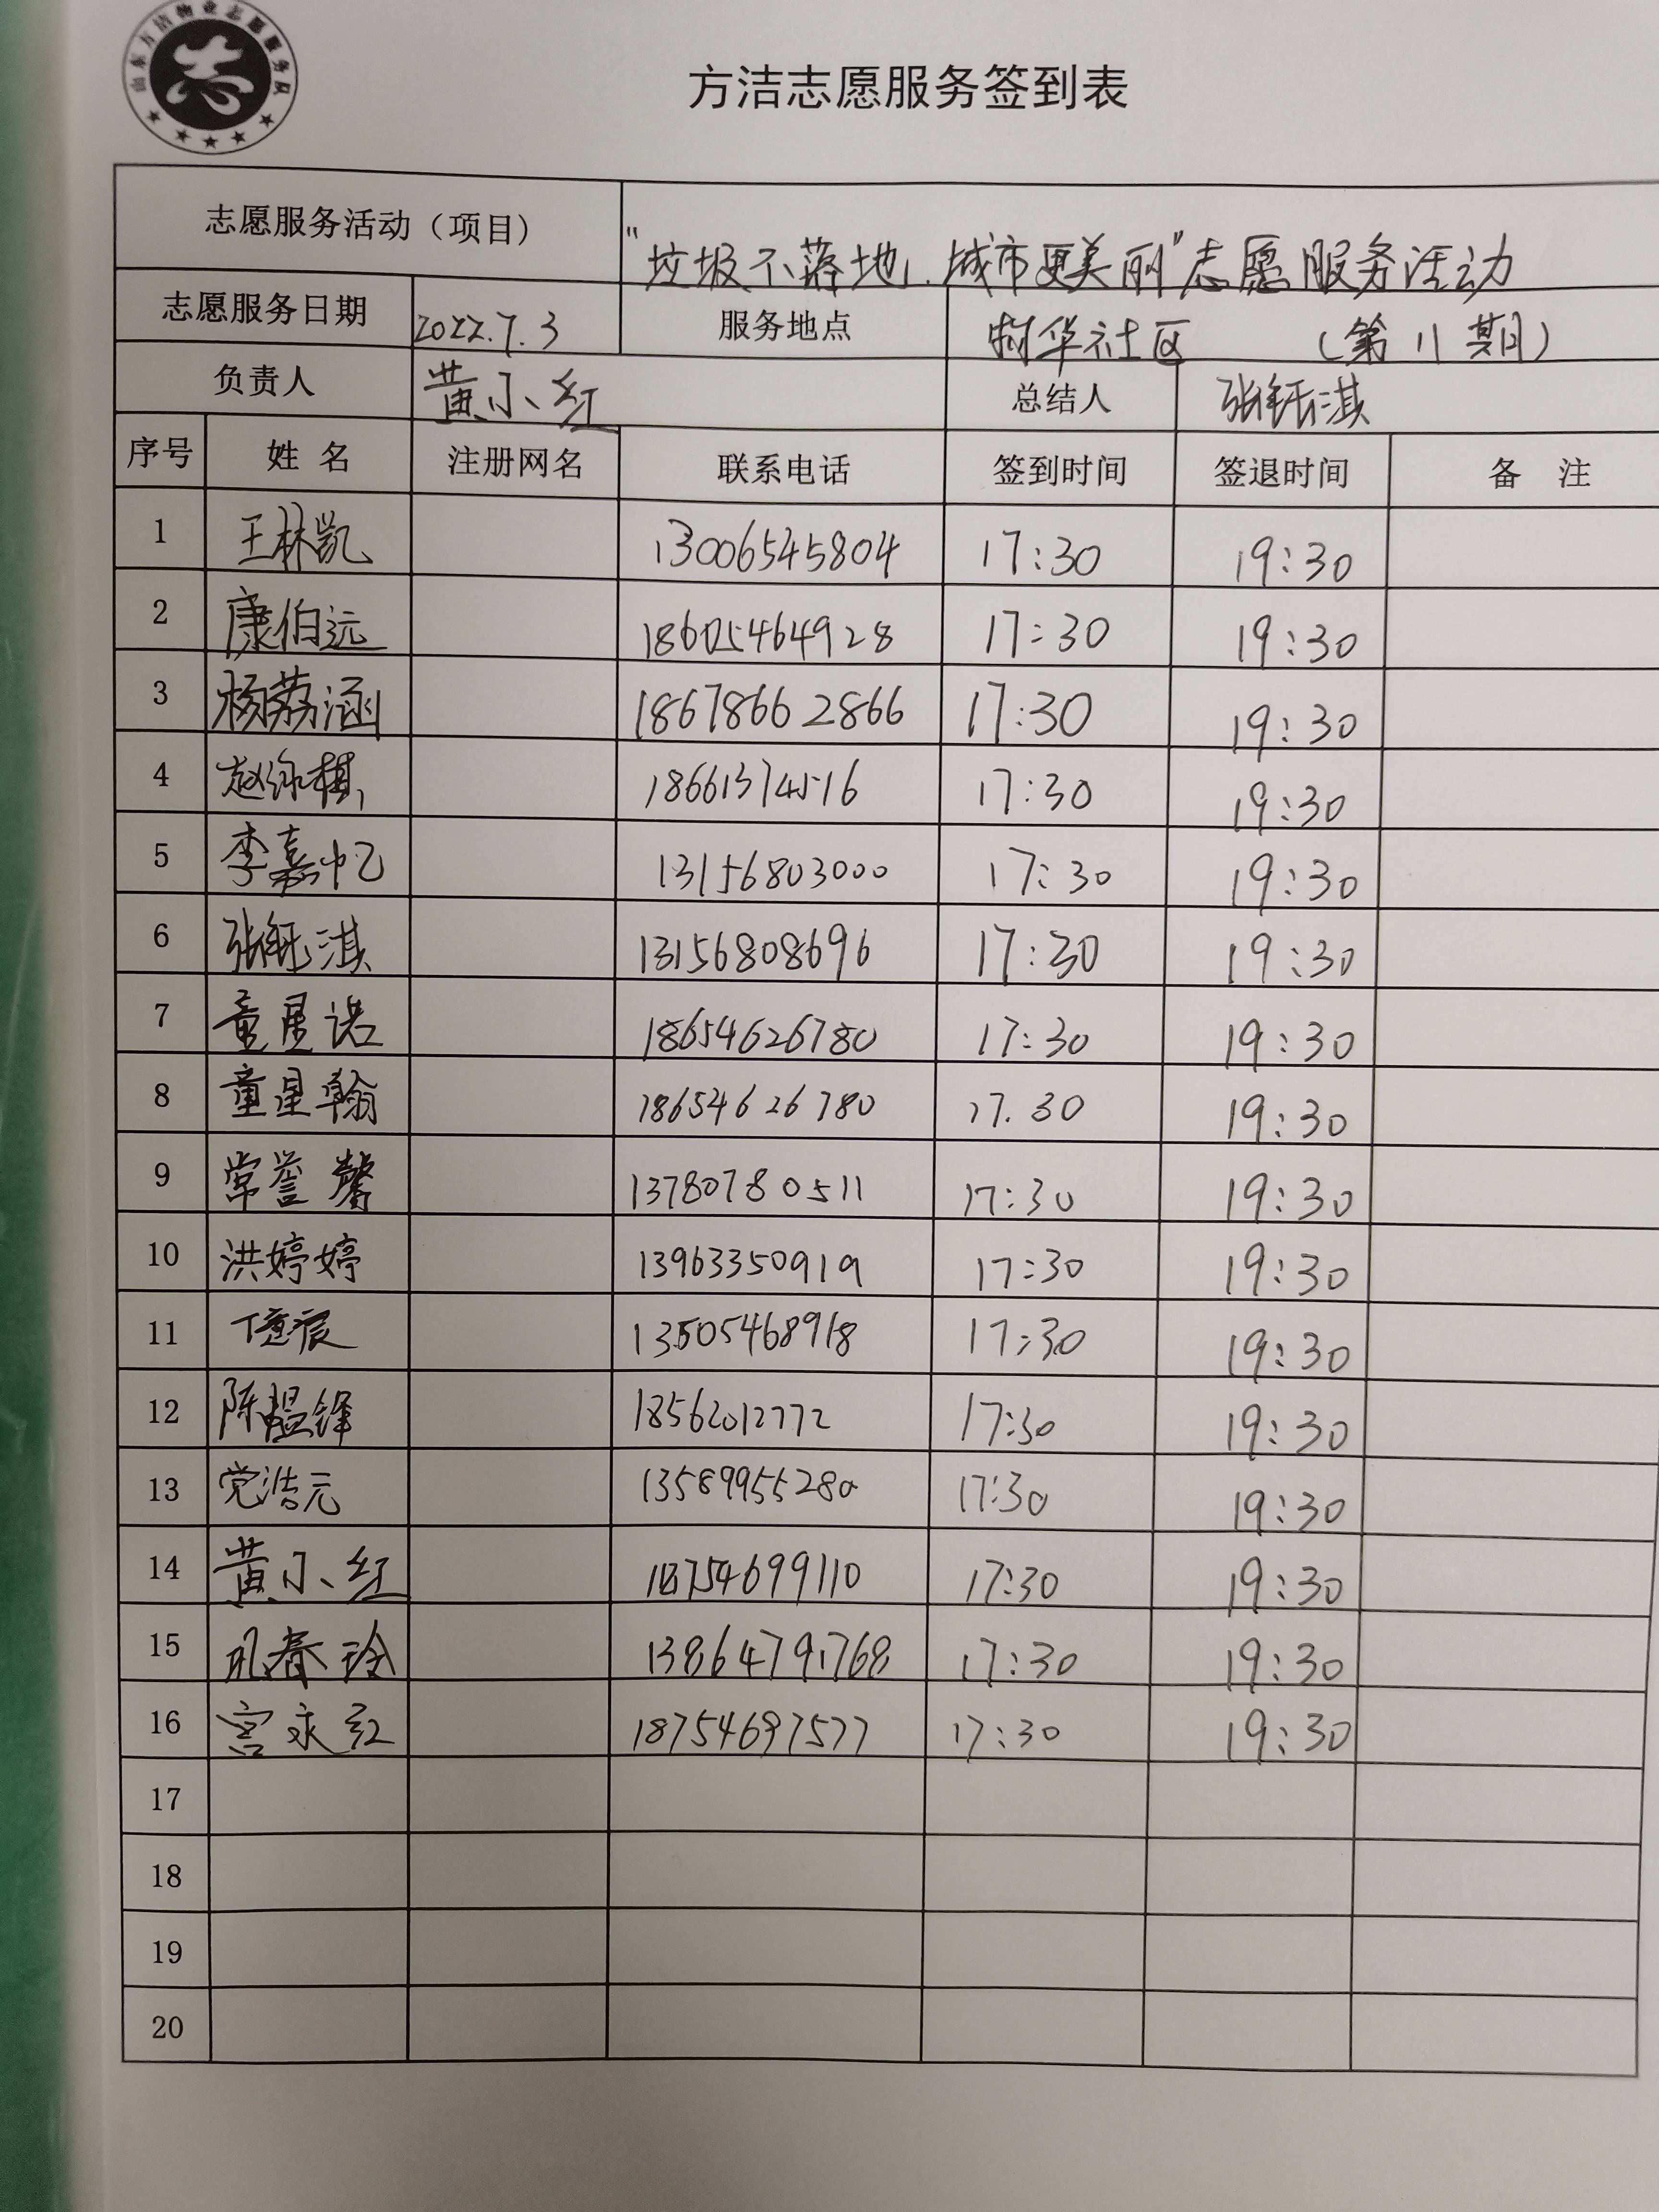 山东方洁物业志愿服务队
方洁志愿服务签到表
志愿服务活动（项目） "垃圾不落地.城市更美丽"志愿服务活动
志愿服务日期 2022.7.3 服务地点 华社区 （第11期）
负责人 黄小红 总结人 张钰淇
序号 姓名 注册网名 联系电话 签到时间 签退时间 备注
1 王林凯 13006545804 17:30 19:30
2 康伯远 18605464928 17:30 19:30
3 杨荔涵 18678662866 17:30 19:30
4 赵 棋 18661374516 17:30 19:30
5 李嘉忆 13156803000 17:30 19:30
6 张钰淇 13156808696 17:30 19:30
7 童星诺 18654626780 17:30 19:30
8 童星翰 18654626780 17.30 19:30
9 常誉馨 13780780511 17:30 19:30
10 洪婷婷 13963350919 17:30 19:30
11 丁 宸 13505468918 17:30 19:30
12 陈韫锋 18562012772 17:30 19:30
13 党浩元 13589955280 17:30 19:30
14 黄小红 18754699110 17:30 19:30
15 孔春玲 13864791768 17:30 19:30
16 宫永红 18754697577 17:30 19:30
17
18
19
20